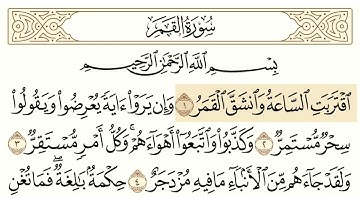 سُورَةُ القَمَرِ
بِسْمِ اللَّهِ الرَّحْمَٰنِ الرَّحِيمِ
اقْتَرَبَتِ السَّاعَةُ وَانْشَقَّ الْقَمَرُ ١ وَإِن يَرَوْا۟ ءَايَةً يُعْرِضُوا۟ وَيَقُولُوا۟
سِحْرٌ مُّسْتَمِرٌّ ٢ وَكَذَّبُوا۟ وَاتَّبَعُوٓا۟ أَهْوَآءَهُمْ ۚ وَكُلُّ أَمْرٍ مُّسْتَقِرٌّ ٣
وَلَقَدْ جَآءَهُم مِّنَ الْأَنۢبَآءِ مَا فِيهِ مُزْدَجَرٌ ٤ حِكْمَةٌۢ بَٰلِغَةٌ ۖ فَمَا تُغْنِ